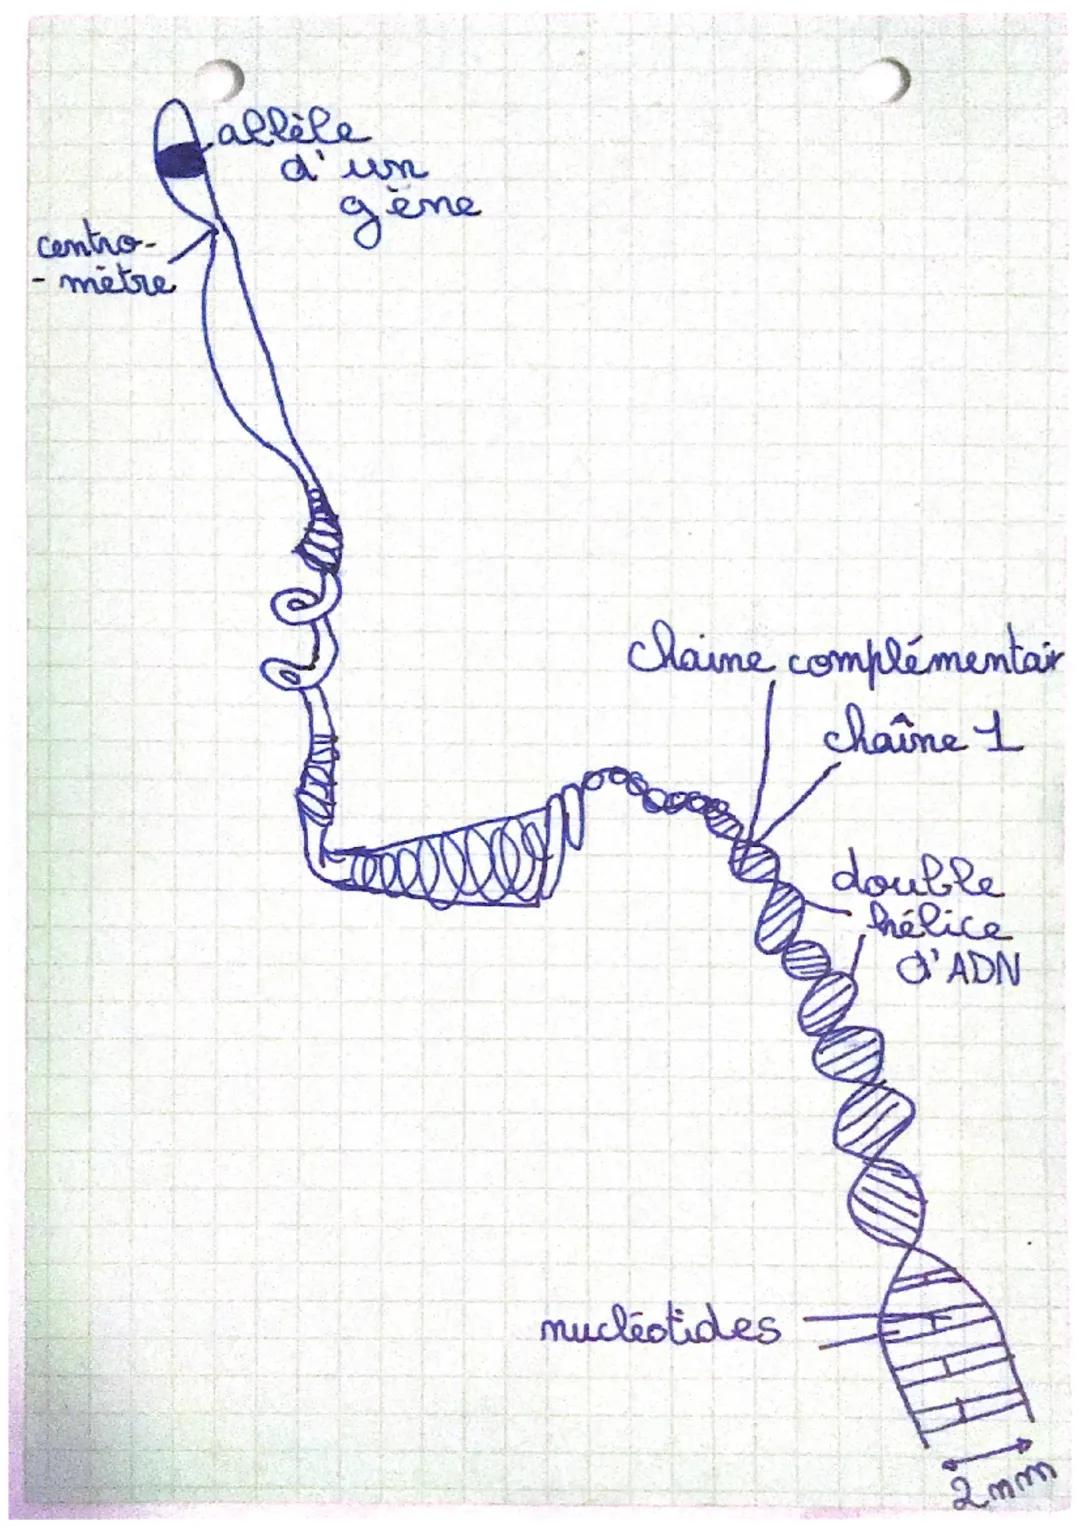 allèle
d'un
gène
centro-
- mètre
chaine complémentair
chaîne 1
double
hélice
d'ADN
nucléotides
2 nm